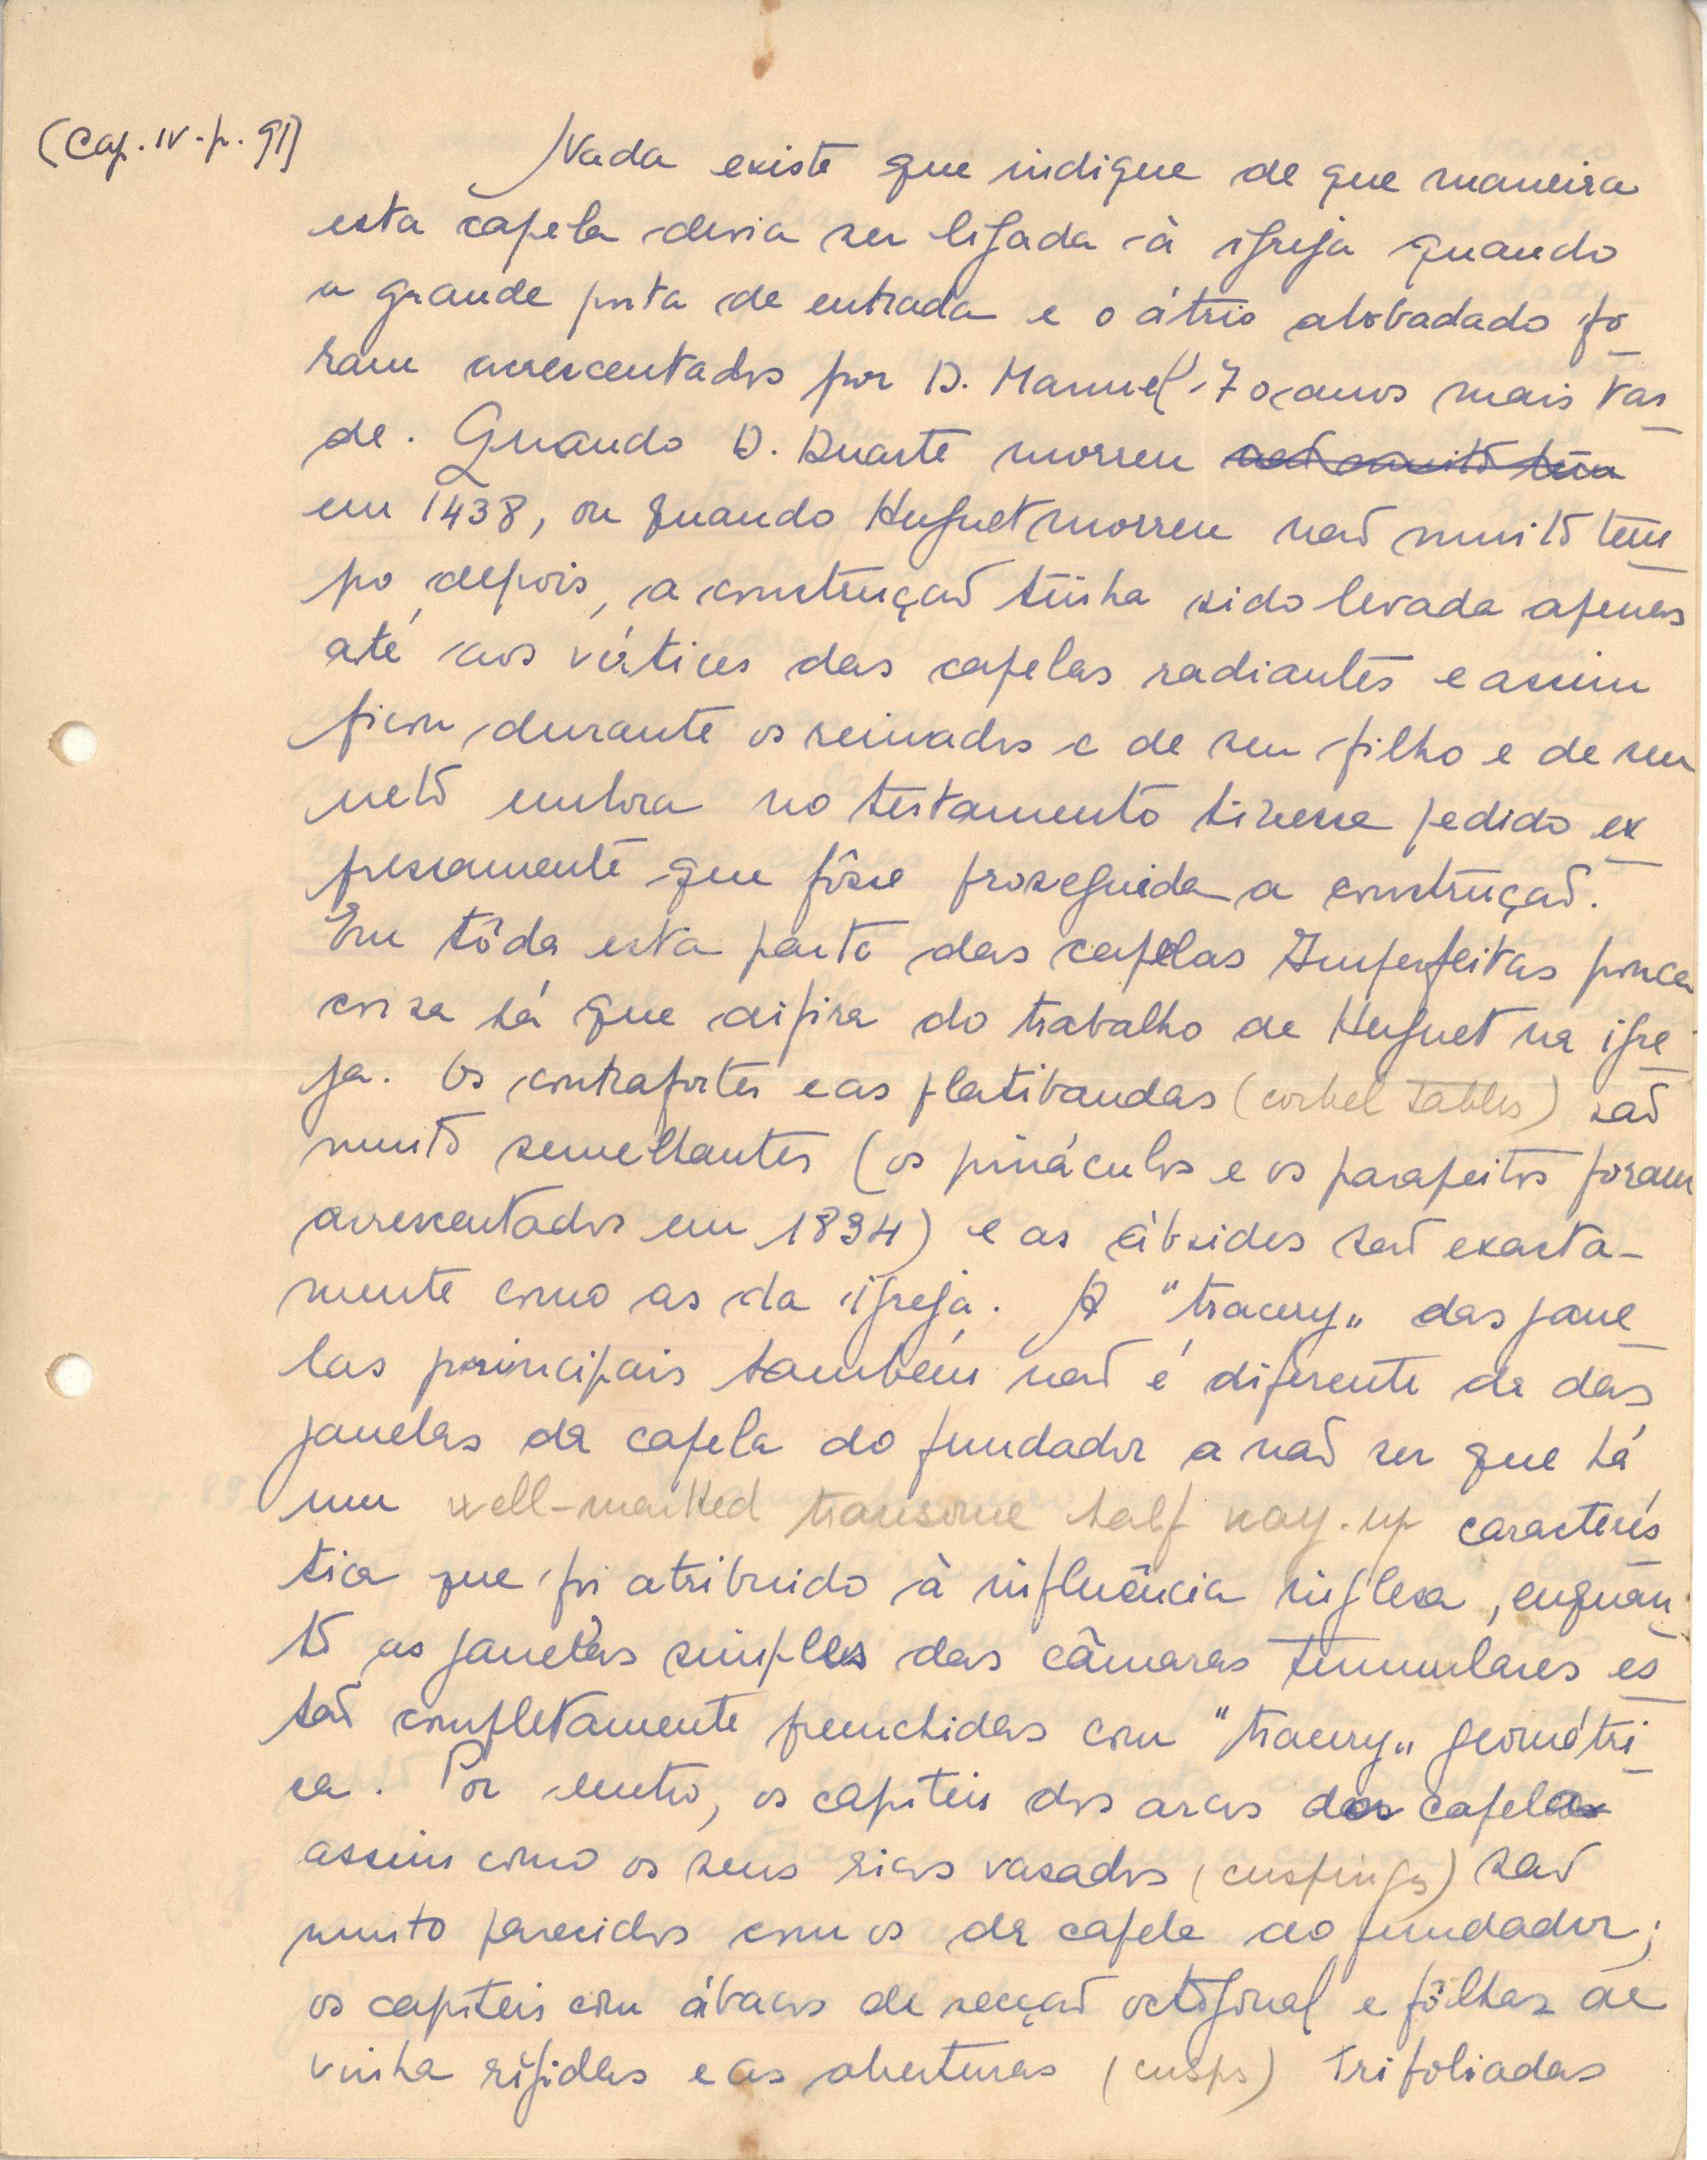 (Cap. IV - p. 91)
Nada existe que indique de que maneira
esta capela devia ser ligada à igreja quando
a grande porta de entrada e o átrio abobadado fo
ram acrescentados por D. Manuel 70 anos mais tar
de. Quando D. Duarte morreu não muito tem
em 1438, ou quando Huguet morreu não muito tem
po depois, a construção tinha sido levada apenas
até aos vértices das capelas radiantes e assim
ficou durante os reinados e de seu filho e de seu
neto embora no testamento tivesse pedido ex
pressamente que fôsse proseguida a construção.
Em tôda esta parte das capelas Imperfeitas pouca
coisa há que difira do trabalho de Huguet na igre
ja. Os contrafortes e as platibandas (corbel tables) são
muito semelhantes (os pináculos e os parapeitos foram
acrescentados em 1834) e as ábsides são exacta-
mente como as da igreja. A "tracery" das jane
las principais também não é diferente da das
janelas da capela do fundador a não ser que há
um well-marked transome half way-up caracterís
tica que foi atribuido à influência inglesa, enquan
to as janelas simples das câmaras tumulares es
tão completamente preenchidas com "tracery" geométri
ca. Por dentro, os capiteis dos arcos das capelas
assim como os seus ricos vasados (cuspings) são
muito parecidos com os da capela do fundador;
os capiteis com ábacos de secção octogonal e fôlhas de
vinha rígidas e as aberturas (cusps) trifoliadas